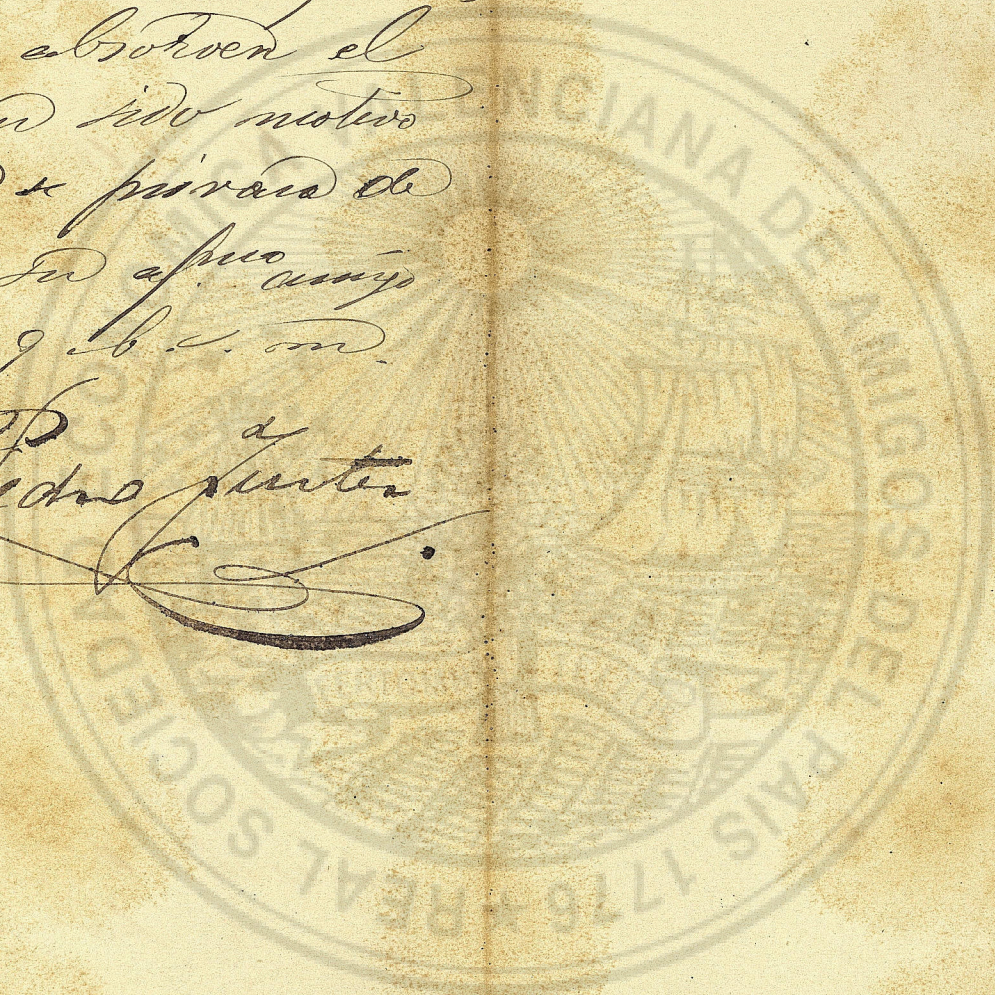 absorven el
sido motivo
se privara de
su afmo amigo
q. b. s. m.
Pedro Fuster
REAL SOCIEDAD ECONÓMICA VALENCIANA DE AMIGOS DEL PAIS 1776